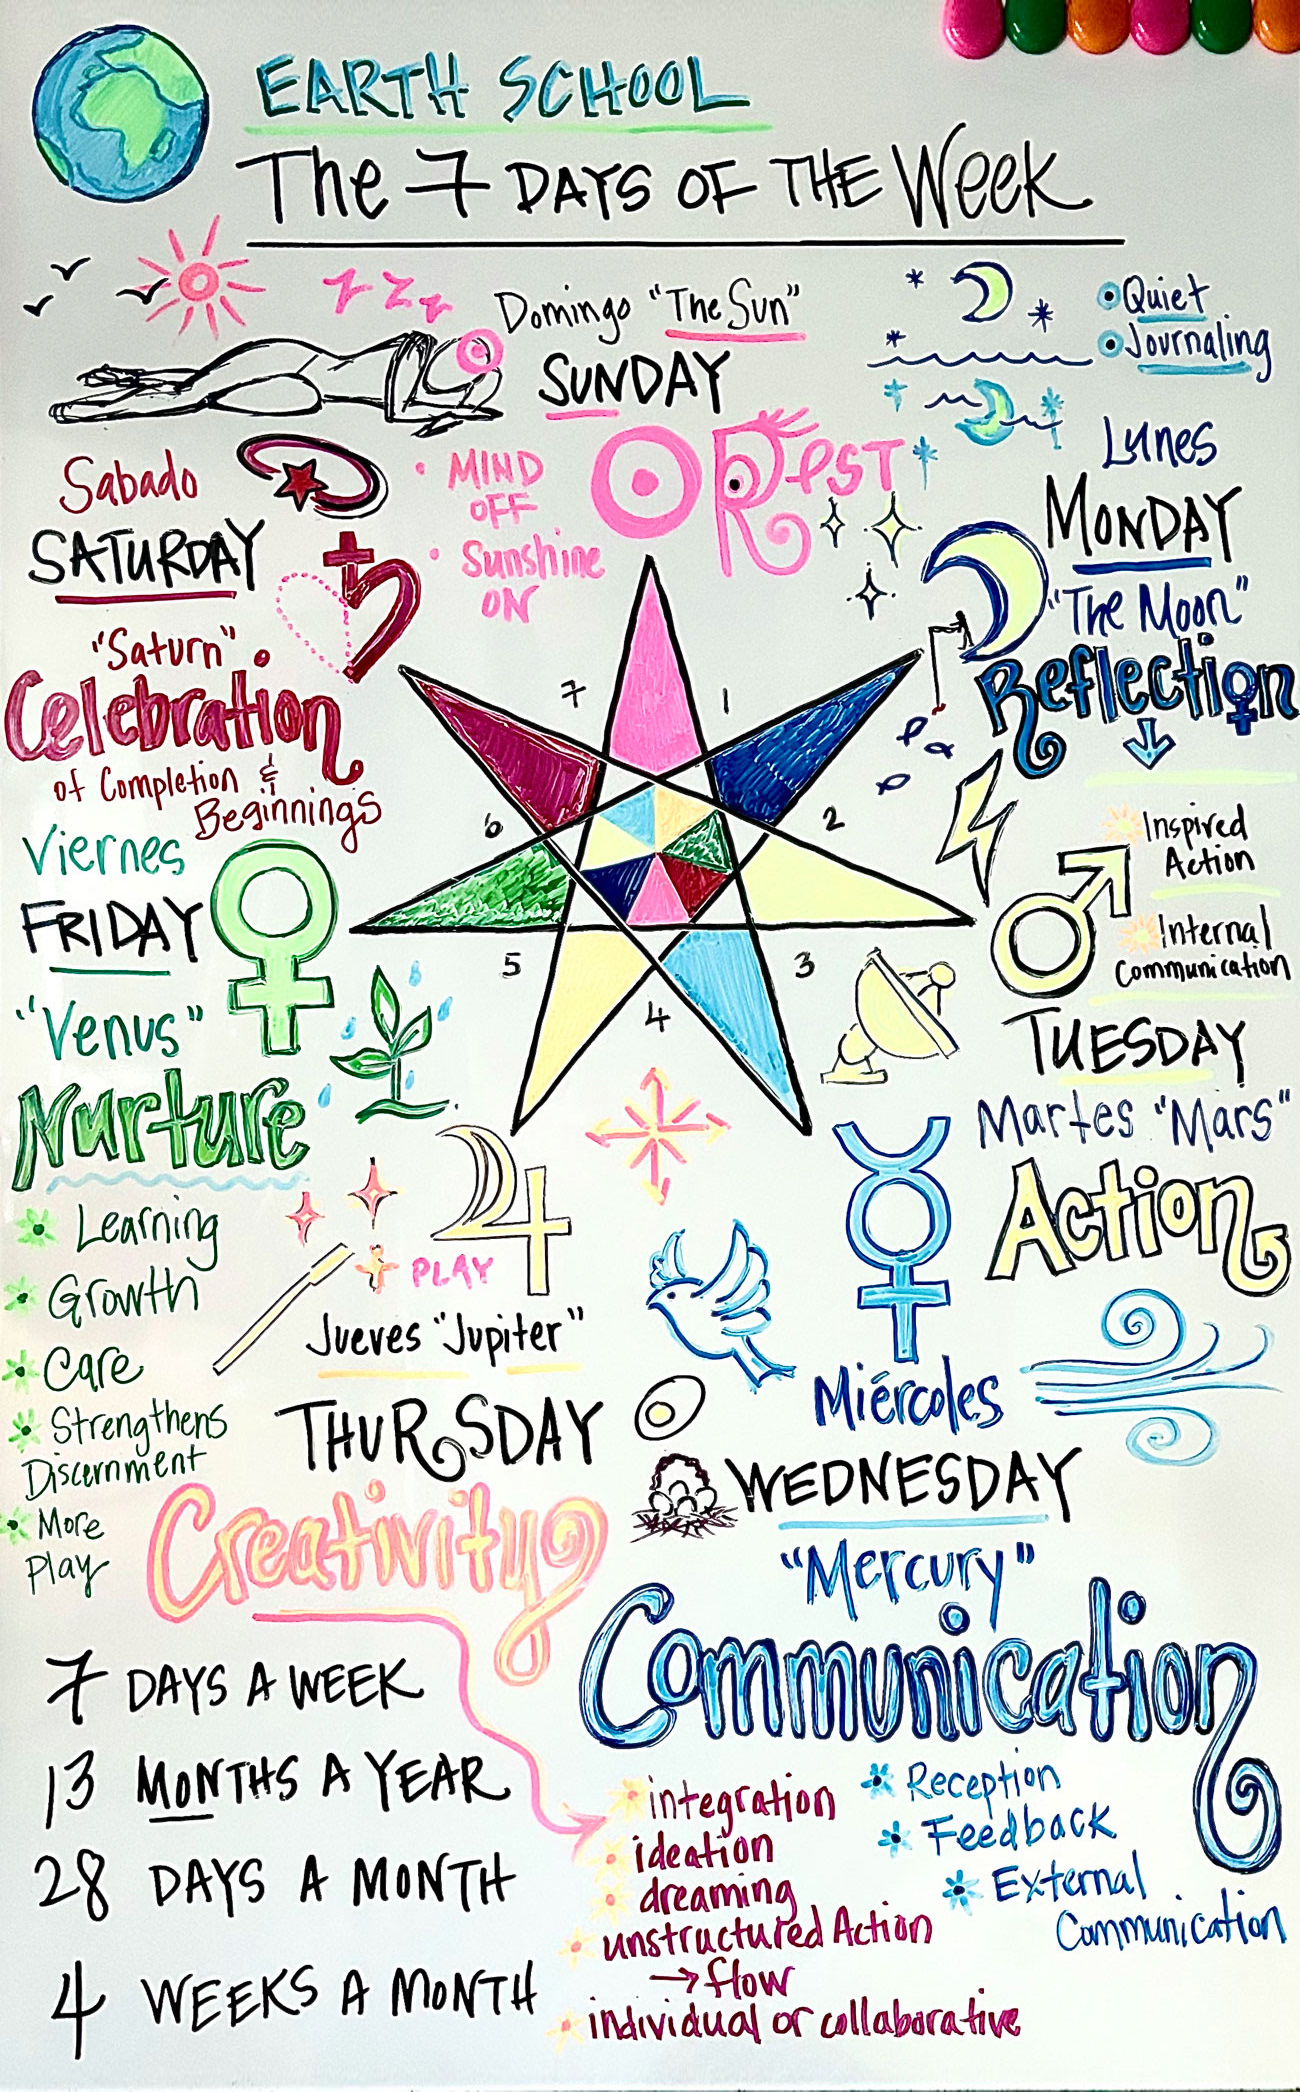 EARTH SCHOOL
The 7 DAYS OF THE Week
Domingo "The Sun"
SUNDAY
Rest
• MIND
OFF
• Sunshine
ON
• Quiet
• Journaling
Lunes
MONDAY
"The Moon"
Reflection
Inspired
Action
Internal
Communication
TUESDAY
Martes "Mars"
Action
Miércoles
WEDNESDAY
"Mercury"
Communication
Reception
Feedback
External
Communication
PLAY
Jueves "Jupiter"
THURSDAY
Creativity
integration
ideation
dreaming
unstructured Action
→ flow
individual or collaborative
Viernes
FRIDAY
"Venus"
Nurture
Learning
Growth
Care
Strengthens
Discernment
More
Play
Sabado
SATURDAY
"Saturn"
Celebration
of Completion &
Beginnings
1
2
3
4
5
6
7
7 DAYS A WEEK
13 MONTHS A YEAR
28 DAYS A MONTH
4 WEEKS A MONTH